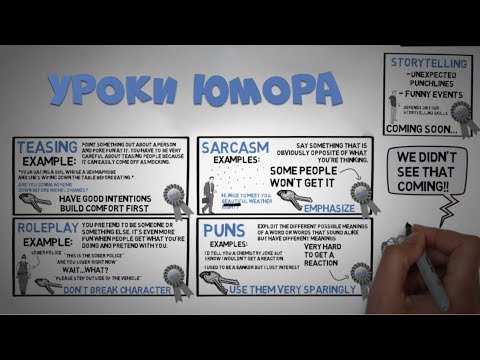 УРОКИ ЮМОРА
TEASING
EXAMPLE:
POINT SOMETHING OUT ABOUT A PERSON
AND POKE FUN AT IT. YOU HAVE TO BE VERY
CAREFUL ABOUT TEASING PEOPLE BECAUSE
IT CAN EASILY COME OFF AS MOCKING.
HAVE GOOD INTENTIONS
BUILD COMFORT FIRST
SARCASM
EXAMPLES:
SAY SOMETHING THAT IS
OBVIOUSLY OPPOSITE OF WHAT
YOU'RE THINKING.
SOME PEOPLE
WON'T GET IT
HI, NICE TO MEET YOU
BEAUTIFUL WEATHER
EMPHASIZE
ROLEPLAY
EXAMPLE:
YOU PRETEND TO BE SOMEONE OR
SOMETHING ELSE. IT'S EVEN MORE
FUN WHEN PEOPLE GET WHAT YOU'RE
DOING AND PRETEND WITH YOU.
SOBER POLICE
"THIS IS THE SOBER POLICE"
ARE YOU SOBER RIGHT NOW"
WAIT...WHAT?
"PLEASE STEP OUTSIDE OF THE VEHICLE"
DON'T BREAK CHARACTER
PUNS
EXAMPLES:
EXPLOIT THE DIFFERENT POSSIBLE MEANINGS
OF A WORD OR WORDS THAT SOUND ALIKE
BUT HAVE DIFFERENT MEANINGS.
I'D TELL YOU A CHEMISTRY JOKE BUT
I KNOW I WOULDN'T GET A REACTION.
I USED TO BE A BANKER BUT I LOST INTEREST
VERY HARD
TO GET A
REACTION
USE THEM VERY SPARINGLY
STORYTELLING
- UNEXPECTED
PUNCHLINES
- FUNNY EVENTS
DEPENDS ON YOUR
STORYTELLING SKILLS
COMING SOON...
WE DIDN'T
SEE THAT
COMING!!